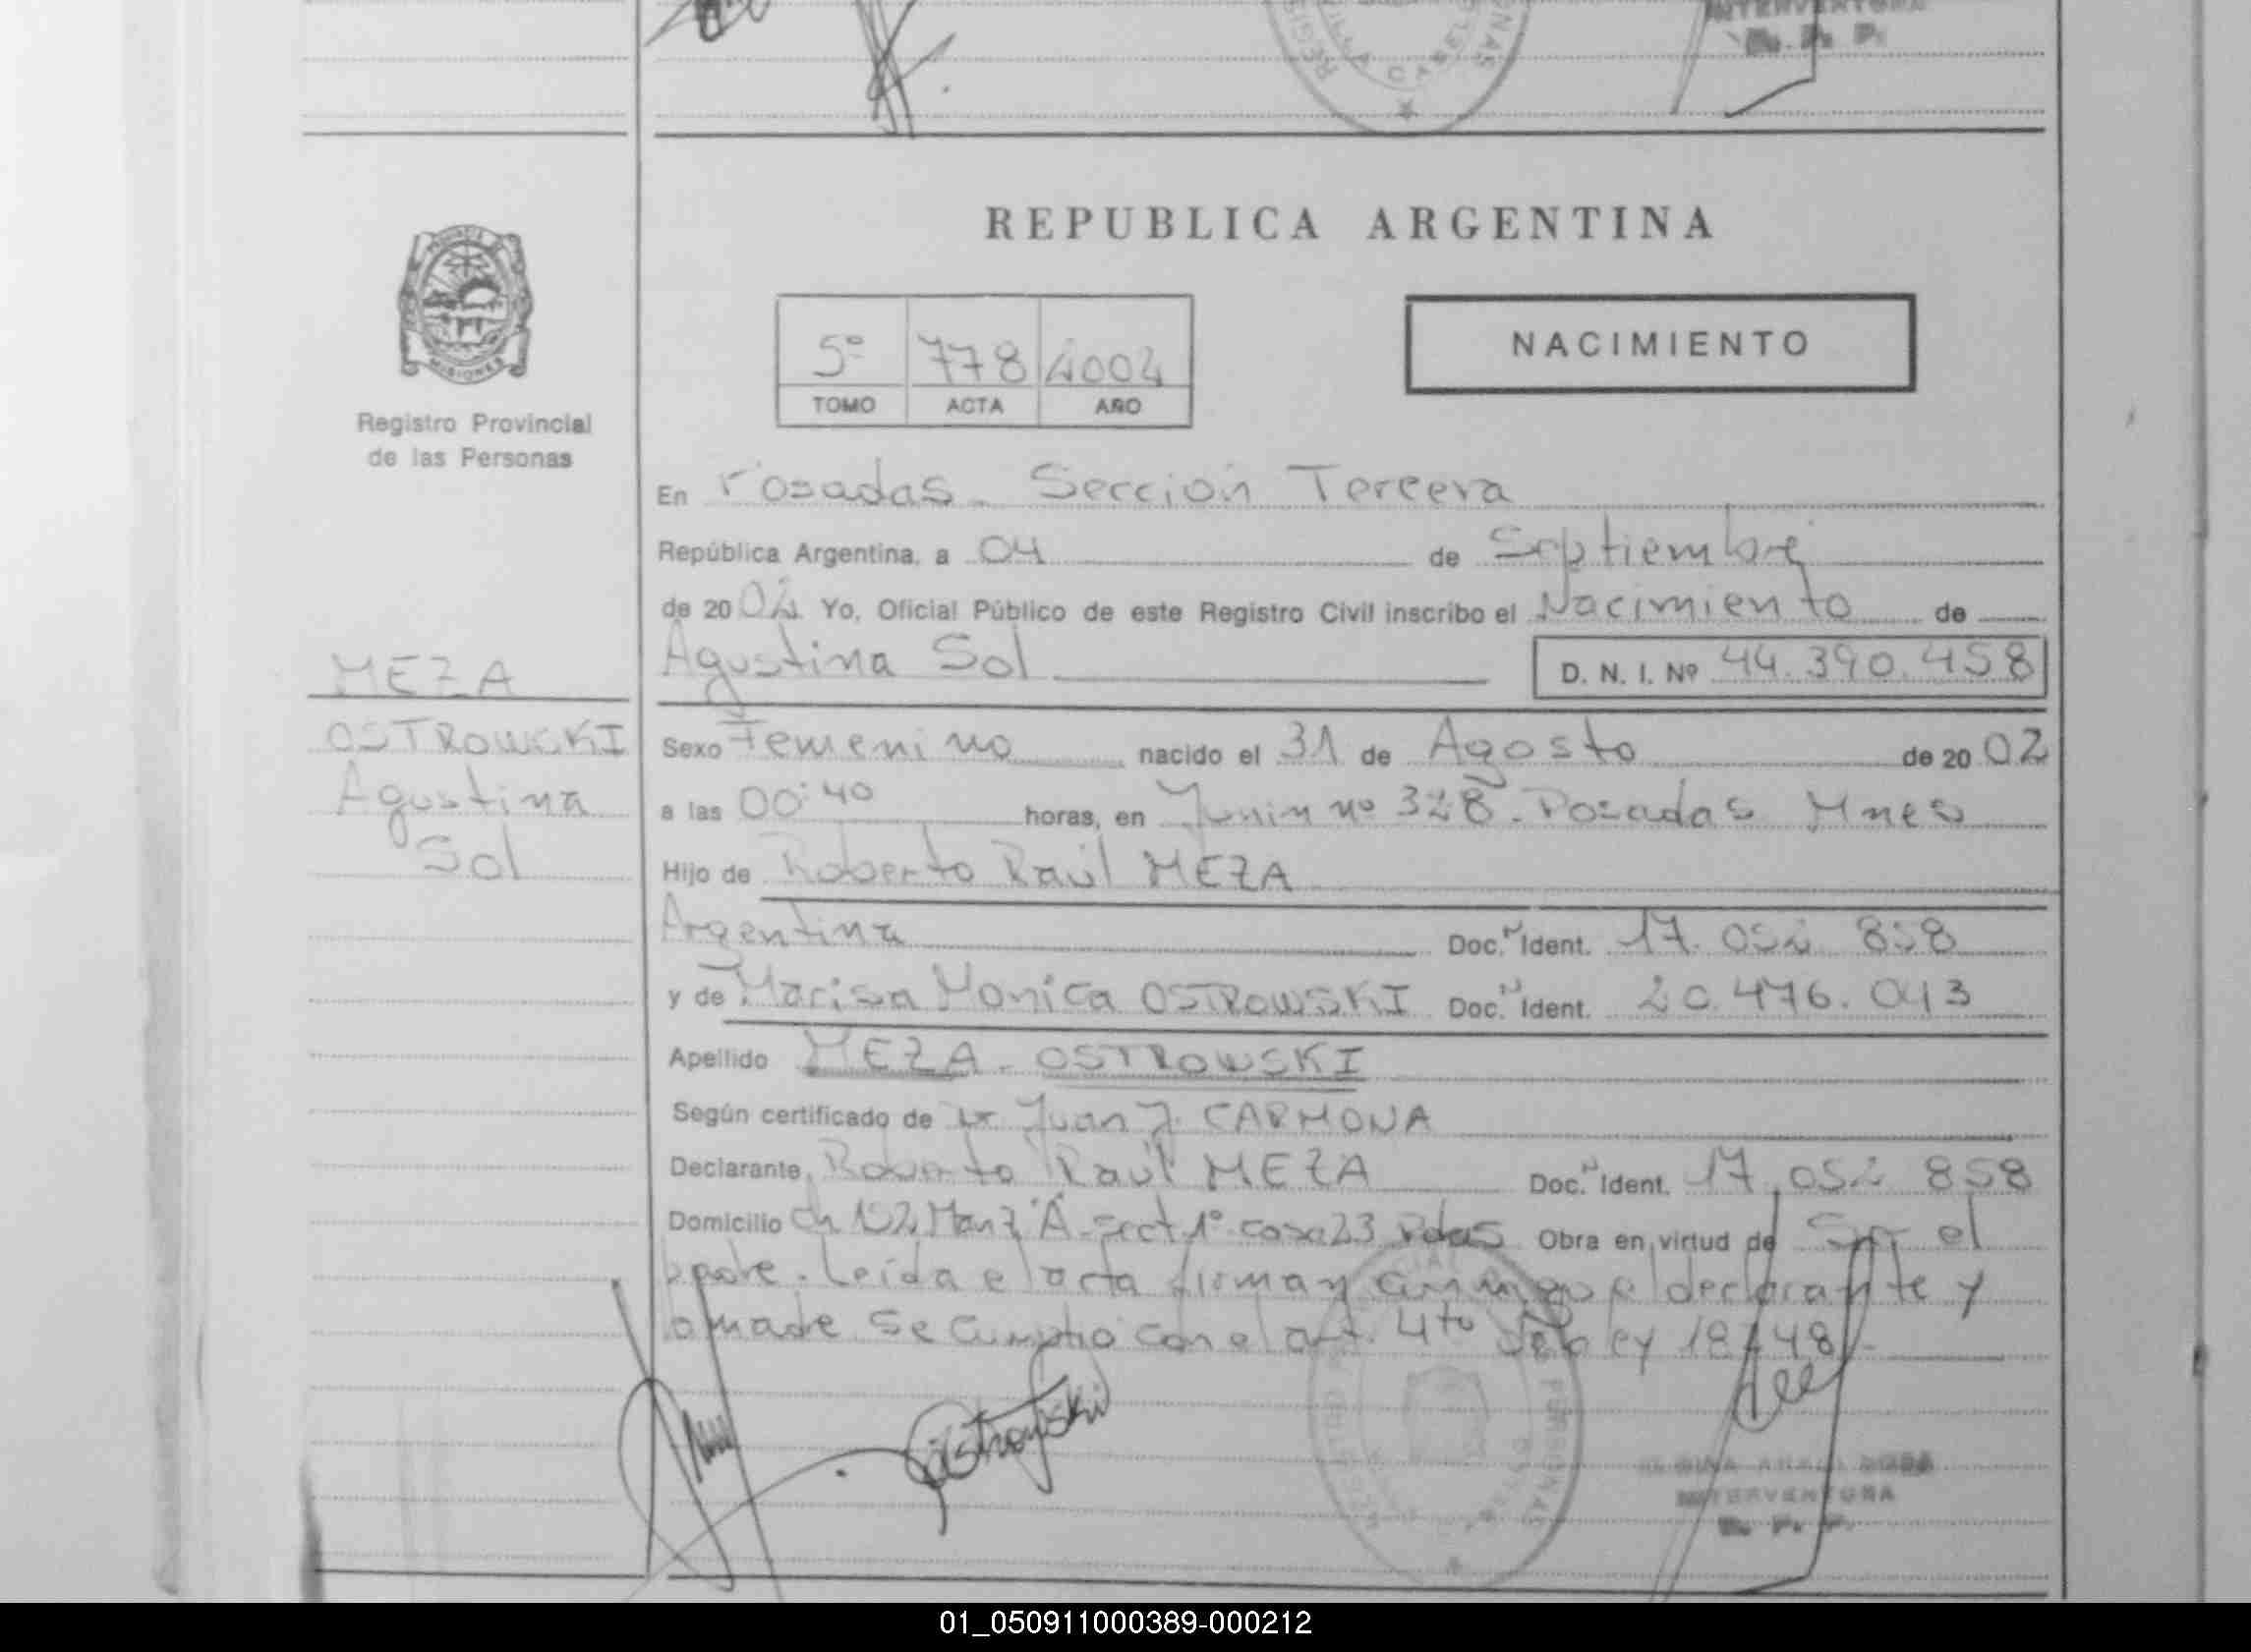 INTERVENTORA
R. P. P.
REPUBLICA ARGENTINA
NACIMIENTO
5º 778 2002
TOMO ACTA AÑO
PROVINCIA DE
MISIONES
Registro Provincial
de las Personas
En Posadas - Sección Tercera
República Argentina, a 04 de Septiembre
de 2002 Yo, Oficial Público de este Registro Civil inscribo el Nacimiento de
Agustina Sol D. N. I. Nº 44.390.458
MEZA
OSTROWSKI
Agustina
Sol
Sexo Femenino nacido el 31 de Agosto de 20 02
a las 00:40 horas, en Junin nº 328 - Posadas Mnes
Hijo de Roberto Raúl MEZA
Argentina Doc. N Ident. 17.052 858
y de Marisa Monica OSTROWSKI Doc. N Ident. 20.476.043
Apellido MEZA - OSTROWSKI
Según certificado de Dr Juan J. CARMONA
Declarante Roberto Raúl MEZA Doc. N Ident. 17.052 858
Domicilio Ch 152 Manz "A - sect 1º casa 23 Pdas Obra en virtud de Ser el
padre. Leída el acta firman conmigo el declarante y
la madre Se Cumplio con el art. 4to de la ley 18248.-
Ostrowski
INTERVENTORA
R. P. P.
01_050911000389-000212